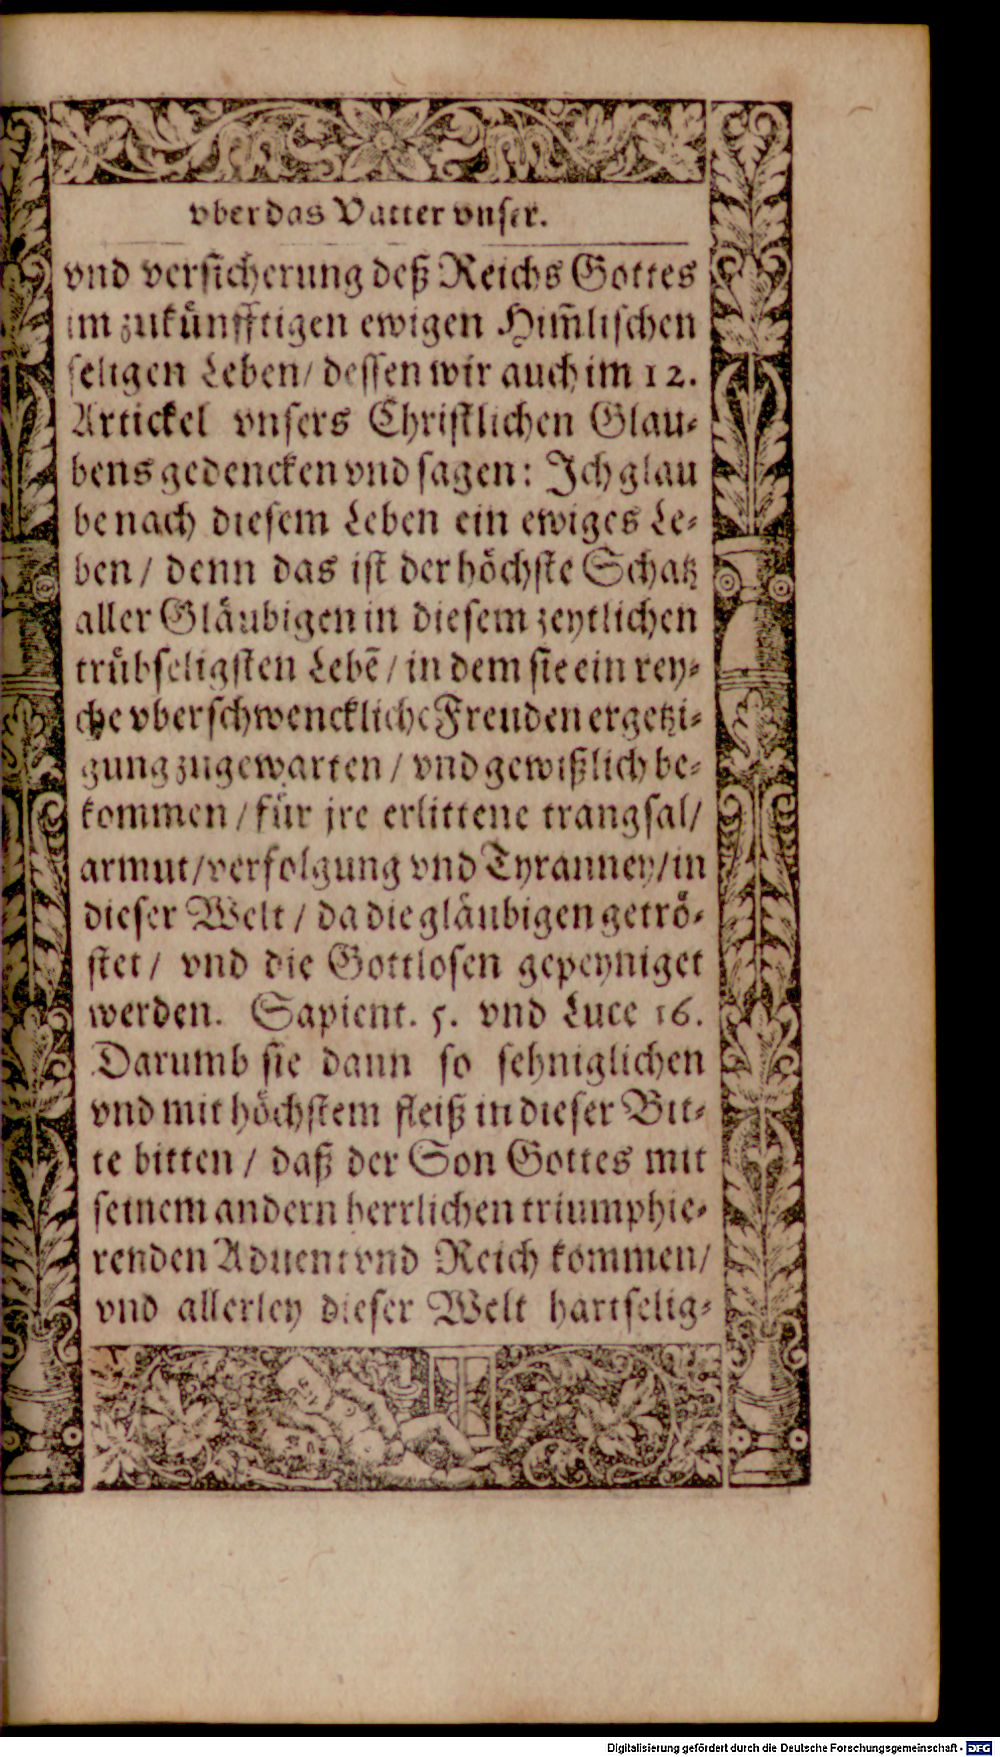 vber das Vatter vnser.
vnd versicherung deß Reichs Gottes
im zukünfftigen ewigen Him̃lischen
seligen Leben/ dessen wir auch im 12.
Artickel vnsers Christlichen Glau-
bens gedencken vnd sagen: Ich glau
be nach diesem Leben ein ewiges Le-
ben/ denn das ist der höchste Schatz
aller Gläubigen in diesem zeytlichen
trübseligsten Lebē/ in dem sie ein rey-
che vberschwenckliche Freuden ergetzi-
gung zugewarten/ vnd gewißlich be-
kommen/ für jre erlittene trangsal/
armut/ verfolgung vnd Tyranney/ in
dieser Welt/ da die gläubigen getrö-
stet/ vnd die Gottlosen gepeyniget
werden. Sapient. 5. vnd Luce 16.
Darumb sie dann so sehniglichen
vnd mit höchstem fleiß in dieser Bit-
te bitten/ daß der Son Gottes mit
seinem andern herrlichen triumphie-
renden Aduent vnd Reich kommen/
vnd allerley dieser Welt hartselig-
Digitalisierung gefördert durch die Deutsche Forschungsgemeinschaft - DFG